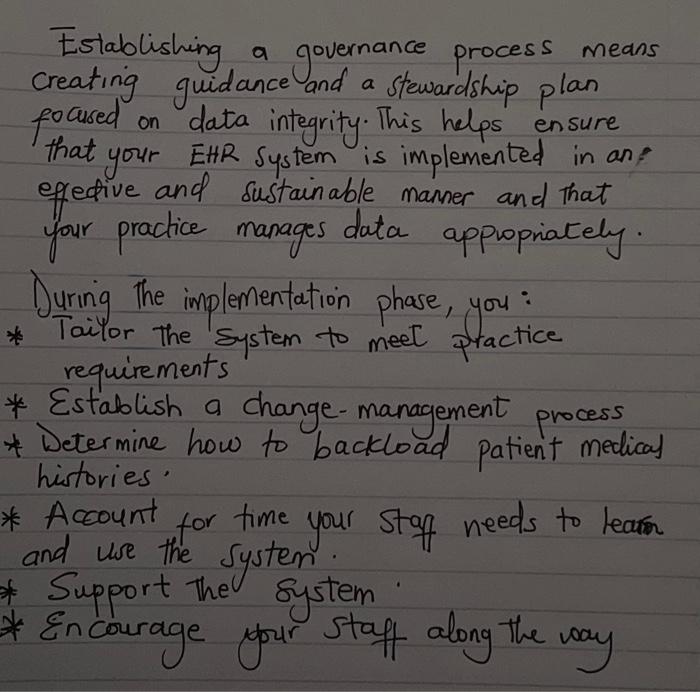 Establishing a governance process means
creating guidance and a stewardship plan
focused on data integrity. This helps ensure
that your EHR System is implemented in an
effective and sustainable manner and that
your practice manages data appropriately.
During the implementation phase, you:
* Tailor the system to meet practice
requirements
* Establish a change-management process
* Determine how to backload patient medical
histories.
* Account for time your staff needs to learn
and use the system.
* Support the system.
* Encourage your staff along the way